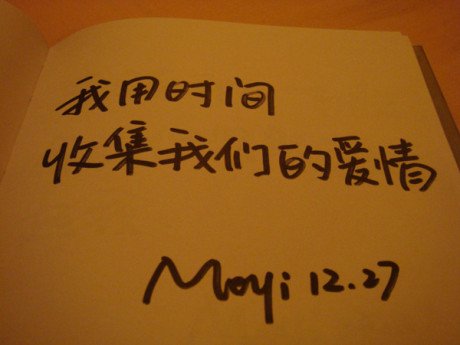 我用时间
收集我们的爱情
Moyi 12.27